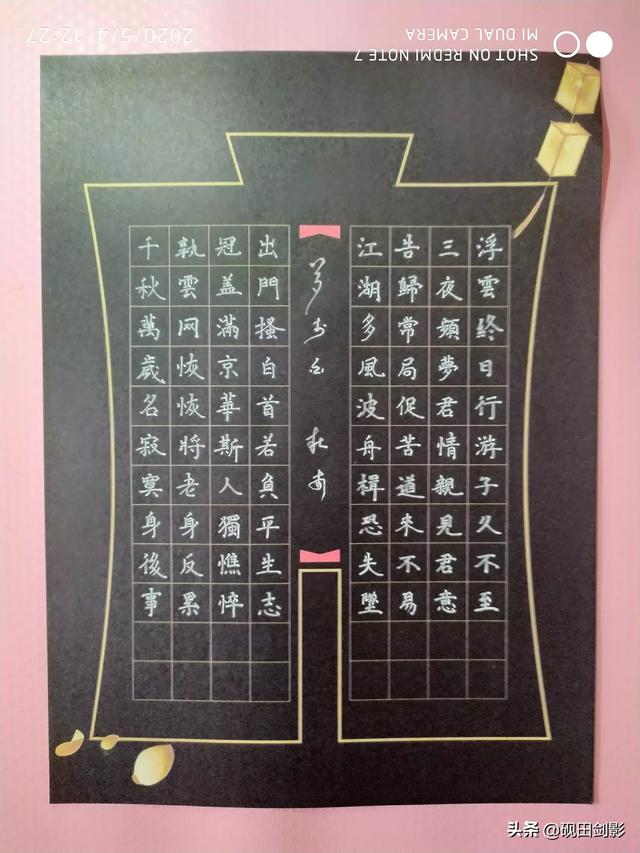 浮雲終日行游子久不至
三夜頻夢君情親見君意
告歸常局促苦道來不易
江湖多風波舟楫恐失墜
夢李白 杜甫
出門搔白首若負平生志
冠盖滿京華斯人獨憔悴
孰雲网恢恢將老身反累
千秋萬歲名寂寞身後事
SHOT ON REDMI NOTE 7
MI DUAL CAMERA
2020/5/4 12:27
头条 @砚田剑影